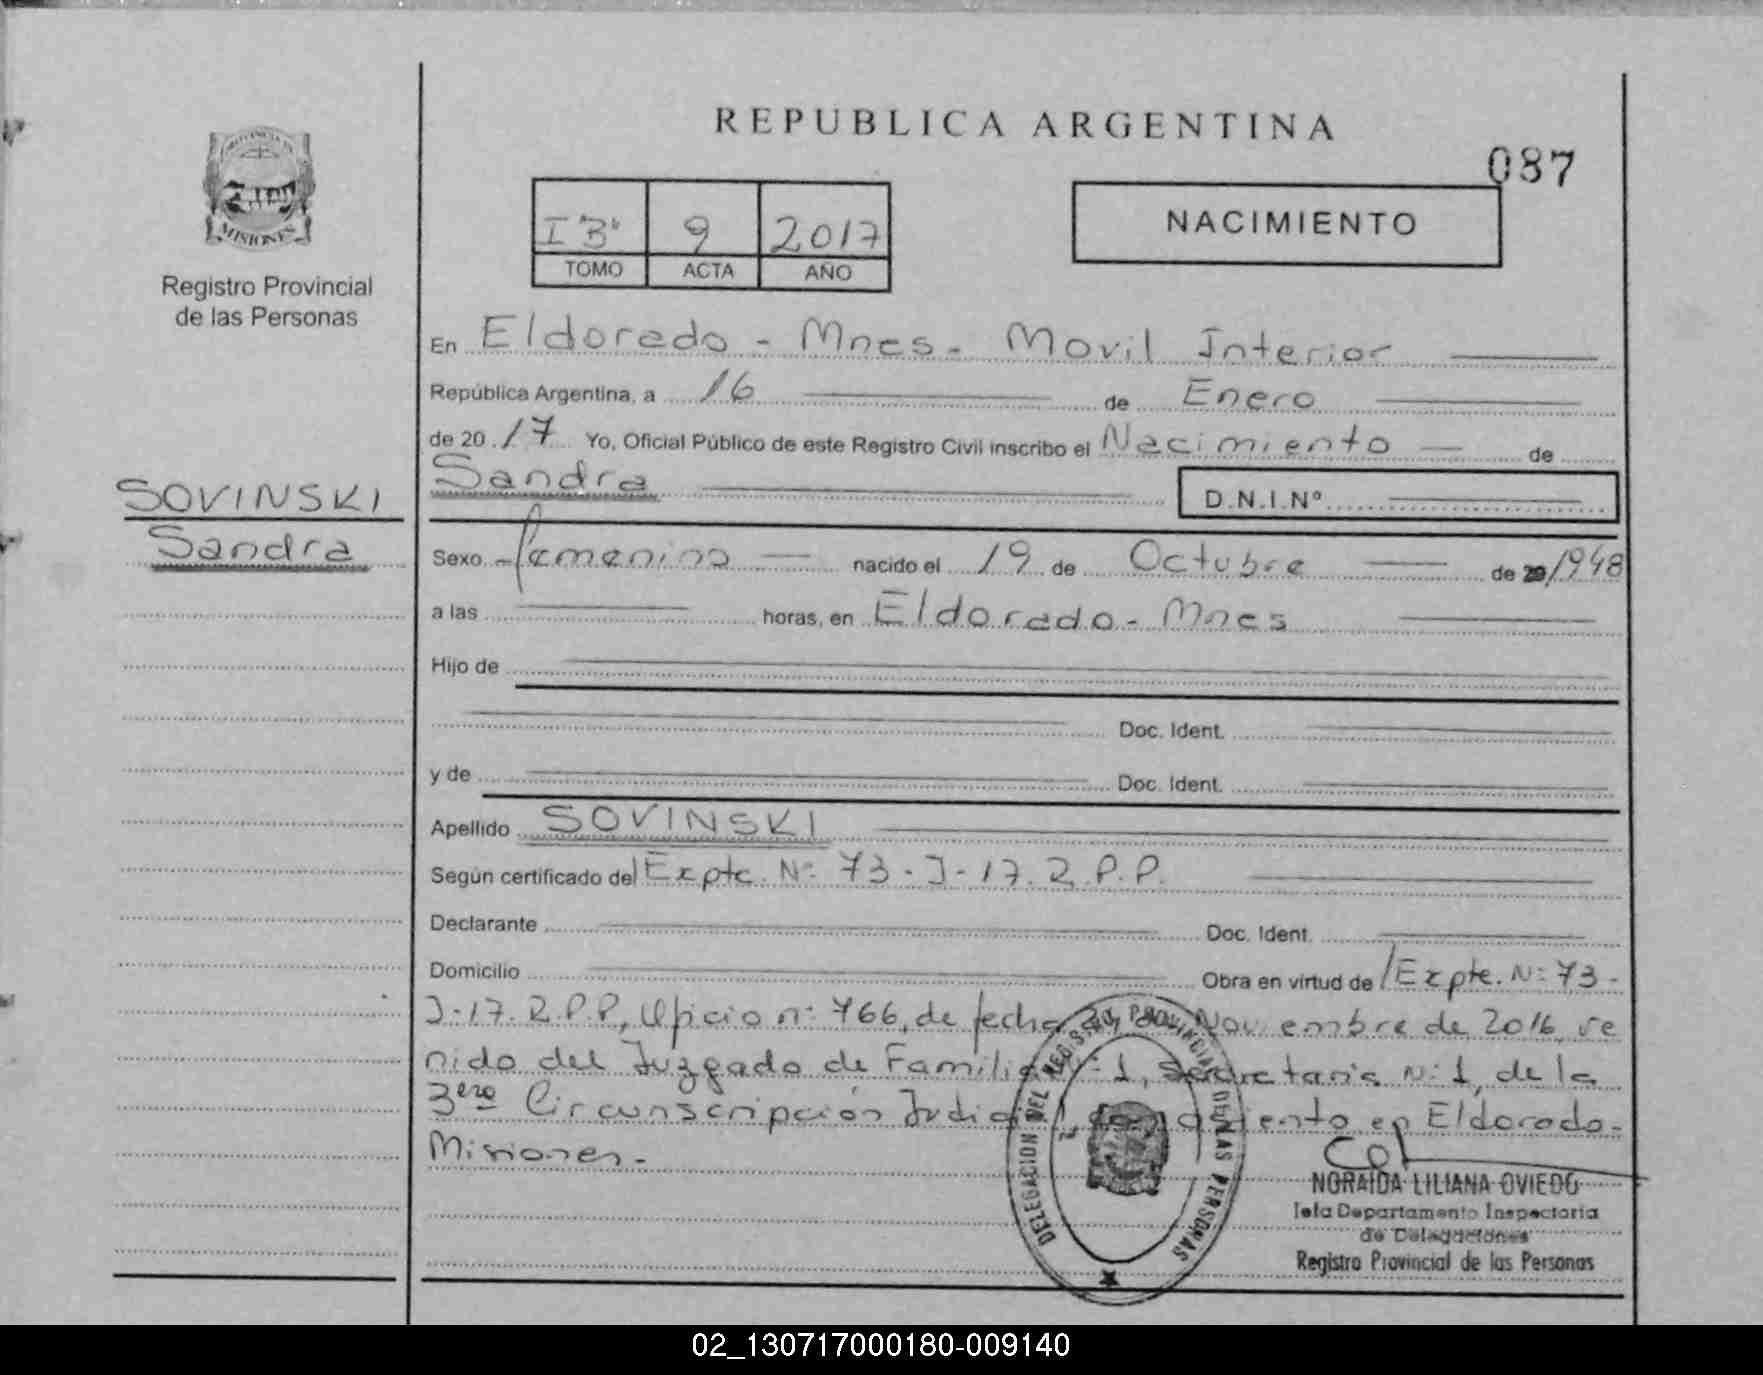 REPUBLICA ARGENTINA
087
PROVINCIA DE
MISIONES
Registro Provincial
de las Personas
I B° 9 2017
TOMO ACTA AÑO
NACIMIENTO
En Eldorado - Mnes - Movil Interior
República Argentina, a 16 de Enero
de 20 17 Yo, Oficial Público de este Registro Civil inscribo el Nacimiento de
Sandra D.N.I.N°
SOVINSKI
Sandra
Sexo Femenino nacido el 19 de Octubre de 20 1948
a las horas, en Eldorado - Mnes
Hijo de
Doc. Ident.
y de Doc. Ident.
Apellido SOVINSKI
Según certificado del Expte. N° 73 - J - 17. R.P.P.
Declarante Doc. Ident.
Domicilio Obra en virtud de Expte. N° 73 -
J-17. R.P.P, Oficio n° 766, de fecha Noviembre de 2016, ve
nido del Juzgado de Familia N° 1, Secretaria N° 1, de la
3era Circunscripción Judicial con asiento en Eldorado -
Misiones.-
DELEGACION DEL REGISTRO PROVINCIAL DE LAS PERSONAS
NORAIDA LILIANA OVIEDO
Jefa Departamento Inspectoria
de Delegaciones
Registro Provincial de las Personas
02_130717000180-009140